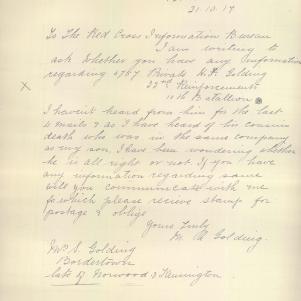 21.10.17
To The Red Cross Information Bureau
I am writing to
ask whether you have any information
regarding 6767 Private H.P. Golding
22nd Reinforcements
10th Battalion
X
I havint heard from him for the last
mails & as I have heard of his cousins
death who was in the same company
as my son, I have been wondering whether
he is all right or not. If you have
any information regarding same
will you communicate with me
for which please recieve stamp for
postage & oblige
Yours Truly
M. A Golding.
Golding
Bordertown
late of Norwood & Kennington